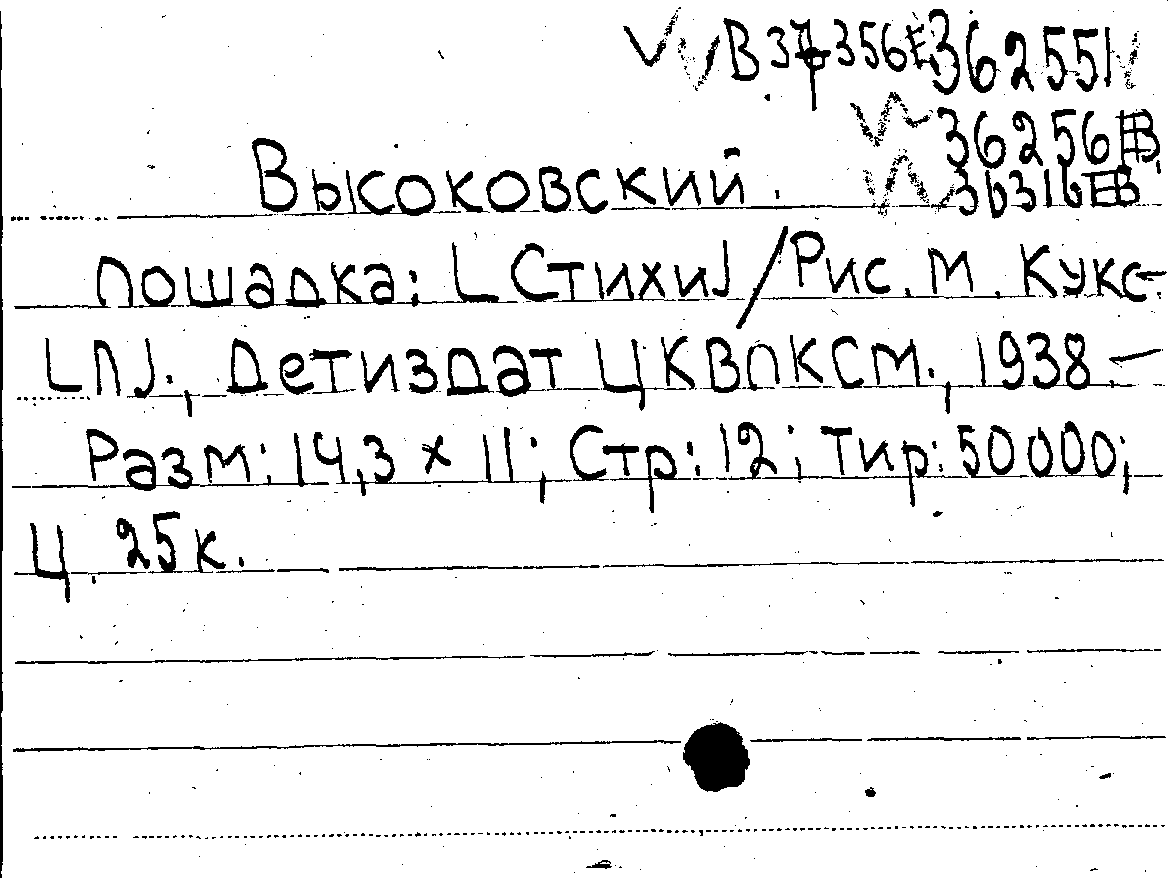 В 37356Е 362551
36256ЕВ
Высоковский. 36316ЕВ
Лошадка: [Стихи] / Рис. М. Кукс.-
[Л]., Детиздат ЦКВЛКСМ., 1938.-
Разм: 14,3 x 11; Стр: 12; Тир: 50000;
Ц. 25к.